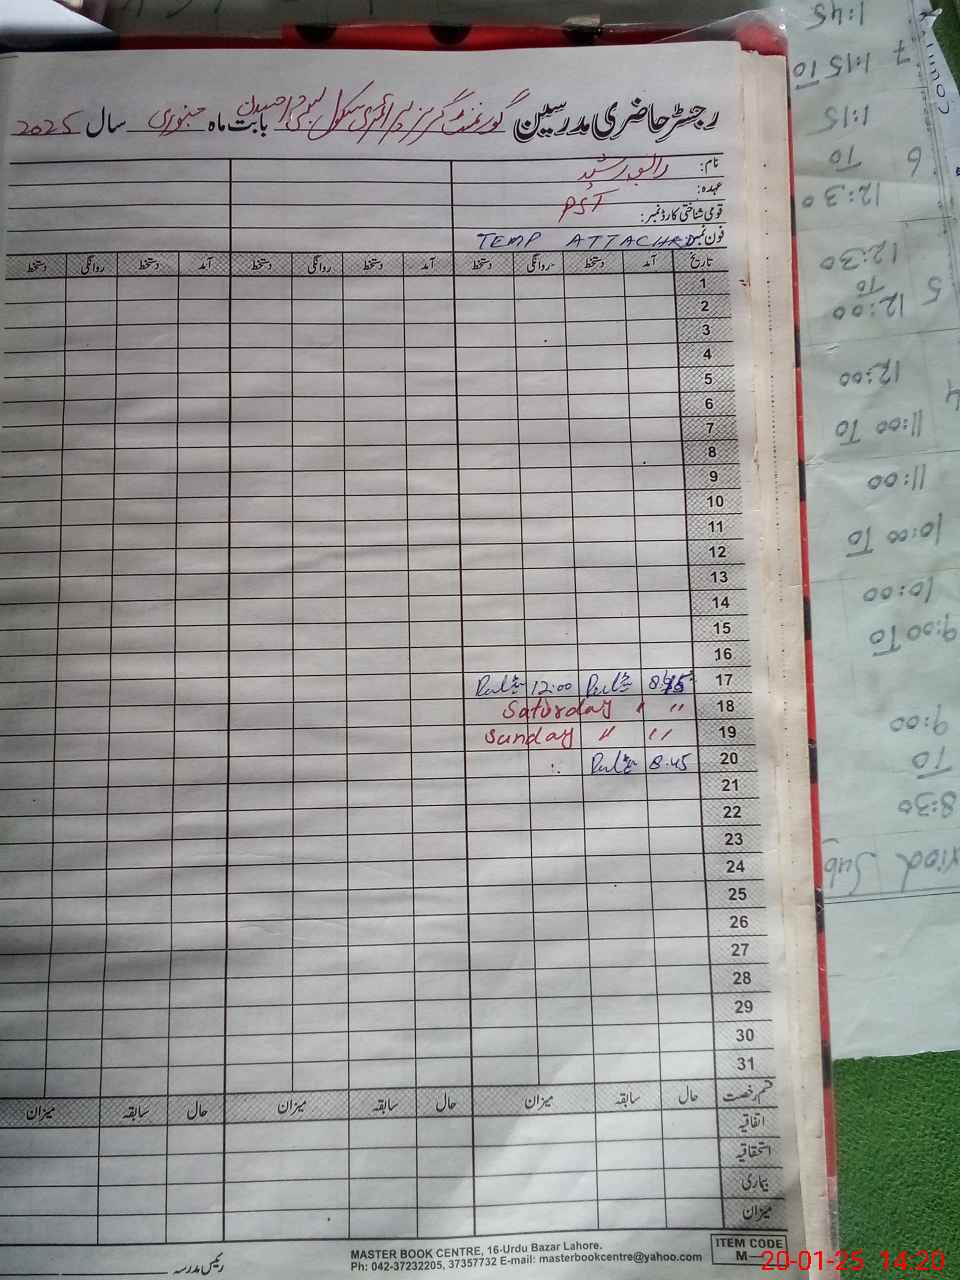 رجسٹر حاضری مدرسین گورنمنٹ گرلز پرائمری سکول بابت ماہ جنوری سال 2025
نام:
عہدہ: PST
قومی شناختی کارڈ نمبر:
فون نمبر TEMP ATTACHED
تاریخ آمد دستخط روانگی دستخط آمد دستخط روانگی دستخط آمد دستخط روانگی دستخط
1
2
3
4
5
6
7
8
9
10
11
12
13
14
15
16
17 12:00
18 Saturday " "
19 Sunday " "
20 8:45
21
22
23
24
25
26
27
28
29
30
31
قسم رخصت حال سابقہ میزان حال سابقہ میزان حال سابقہ میزان
اتفاقیہ
استحقاقیہ
بیماری
میزان
رئیس مدرسہ
MASTER BOOK CENTRE, 16-Urdu Bazar Lahore.
Ph: 042-37232205, 37357732 E-mail: masterbookcentre@yahoo.com
ITEM CODE
M—
20-01-25 14:20
8:30
TO
9:00
9:00 TO
10:00
10:00 TO
11:00
11:00 TO
12:00
4
12:00
TO
12:30
5
12:30
TO
1:15
6
1:15 TO
1:45
7